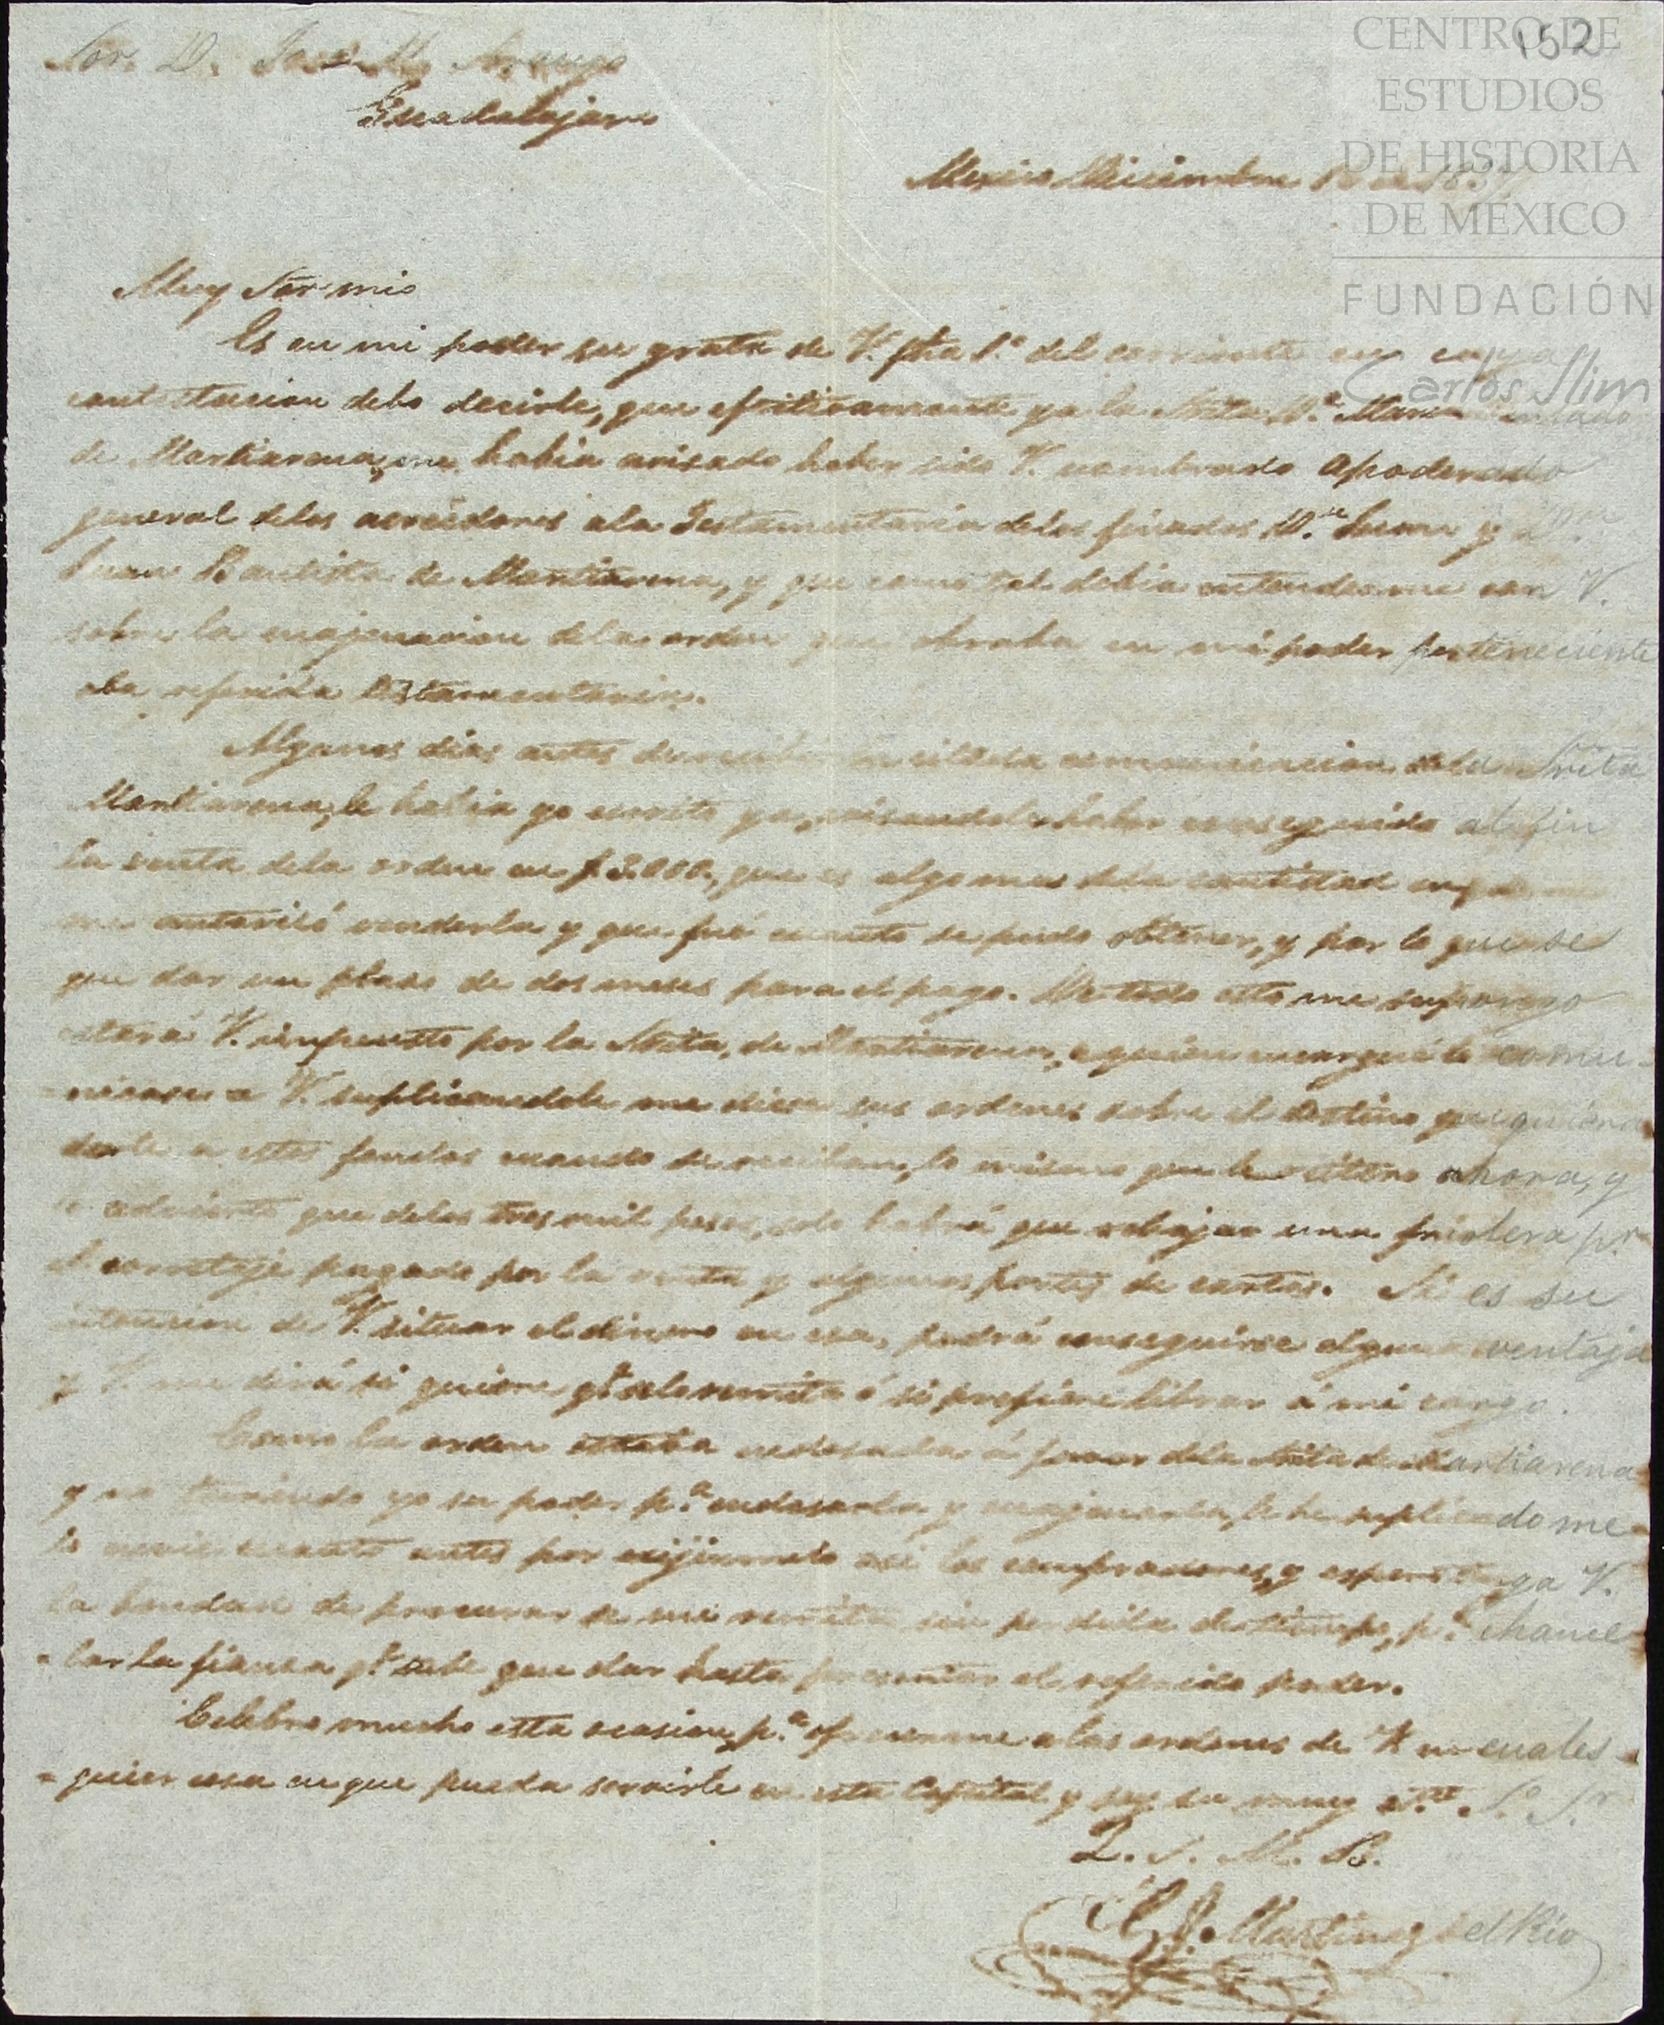 152
CENTRO DE
ESTUDIOS
DE HISTORIA
DE MÉXICO
FUNDACIÓN
Carlos Slim
Sor. D. José M. Araujo
Guadalajara
Mexico Diciembre
Muy Sor mio
Es en mi poder su grata de V. fha 1.º del corriente en cuya
contestacion debo decirle, que efectivamente ya la Srita D.ª Maria
de Martiarena, me habia avisado haber sido V. nombrado apoderado
general delos acreedores ala Testamentaria delos finados D.n y D.n
Juan Bautista de Martiarena, y que como tal debia entenderme con V.
sobre la enajenacion dela orden que obraba en mi poder perteneciente
ala referida testamentaria.
Algunos dias antes de recibir la citada comunicacion dela Srita
Martiarena, le habia yo escrito ya, avisandole haber conseguido al fin
la venta dela orden en $3.000, que es algo mas dela cantidad en que
me autorisó venderla y que fué cuanto se pudo obtener, y por lo que se
que dar un plaso de dos meses para el pago. De todo esto me supongo
estará V. impuesto por la Srita, de Martiarena, a quien encargué lo comu-
-nicase a V. suplicandole me diese sus ordenes sobre el destino que quiera
darle a estos fondos cuando se reciban, lo mismo que le reitero ahora, y
le advierto que delos tres mil pesos, solo habrá que rebajar una friolera p.r
el corretaje pagado por la venta y algunos portes de cartas. Si es su
intencion de V. situar el dinero en esa, podrá conseguirse alguna ventaja
y V. me dirá si quiere q.e selo remita ó si prefiere librar á mi cargo.
Como la orden estaba endosada á favor dela Srita de Martiarena
y no teniendo yo su poder p.a endosarla y enajenarla, le he suplicado me
lo envie cuanto antes por exijirmelo asi los compradores, y espero tenga V.
la bondad de procurar se me remita sin perdida de tiempo, p.a chance-
-lar la fianza q.e tube que dar hasta presentar el referido poder.
Celebro mucho esta ocasion p.a ofrecerme a las ordenes de V. en cuales-
-quier cosa en que pueda servirle en esta Capital y soy su muy at.to S.o S.r
Q. S. M. B.
J. Martinez del Rio